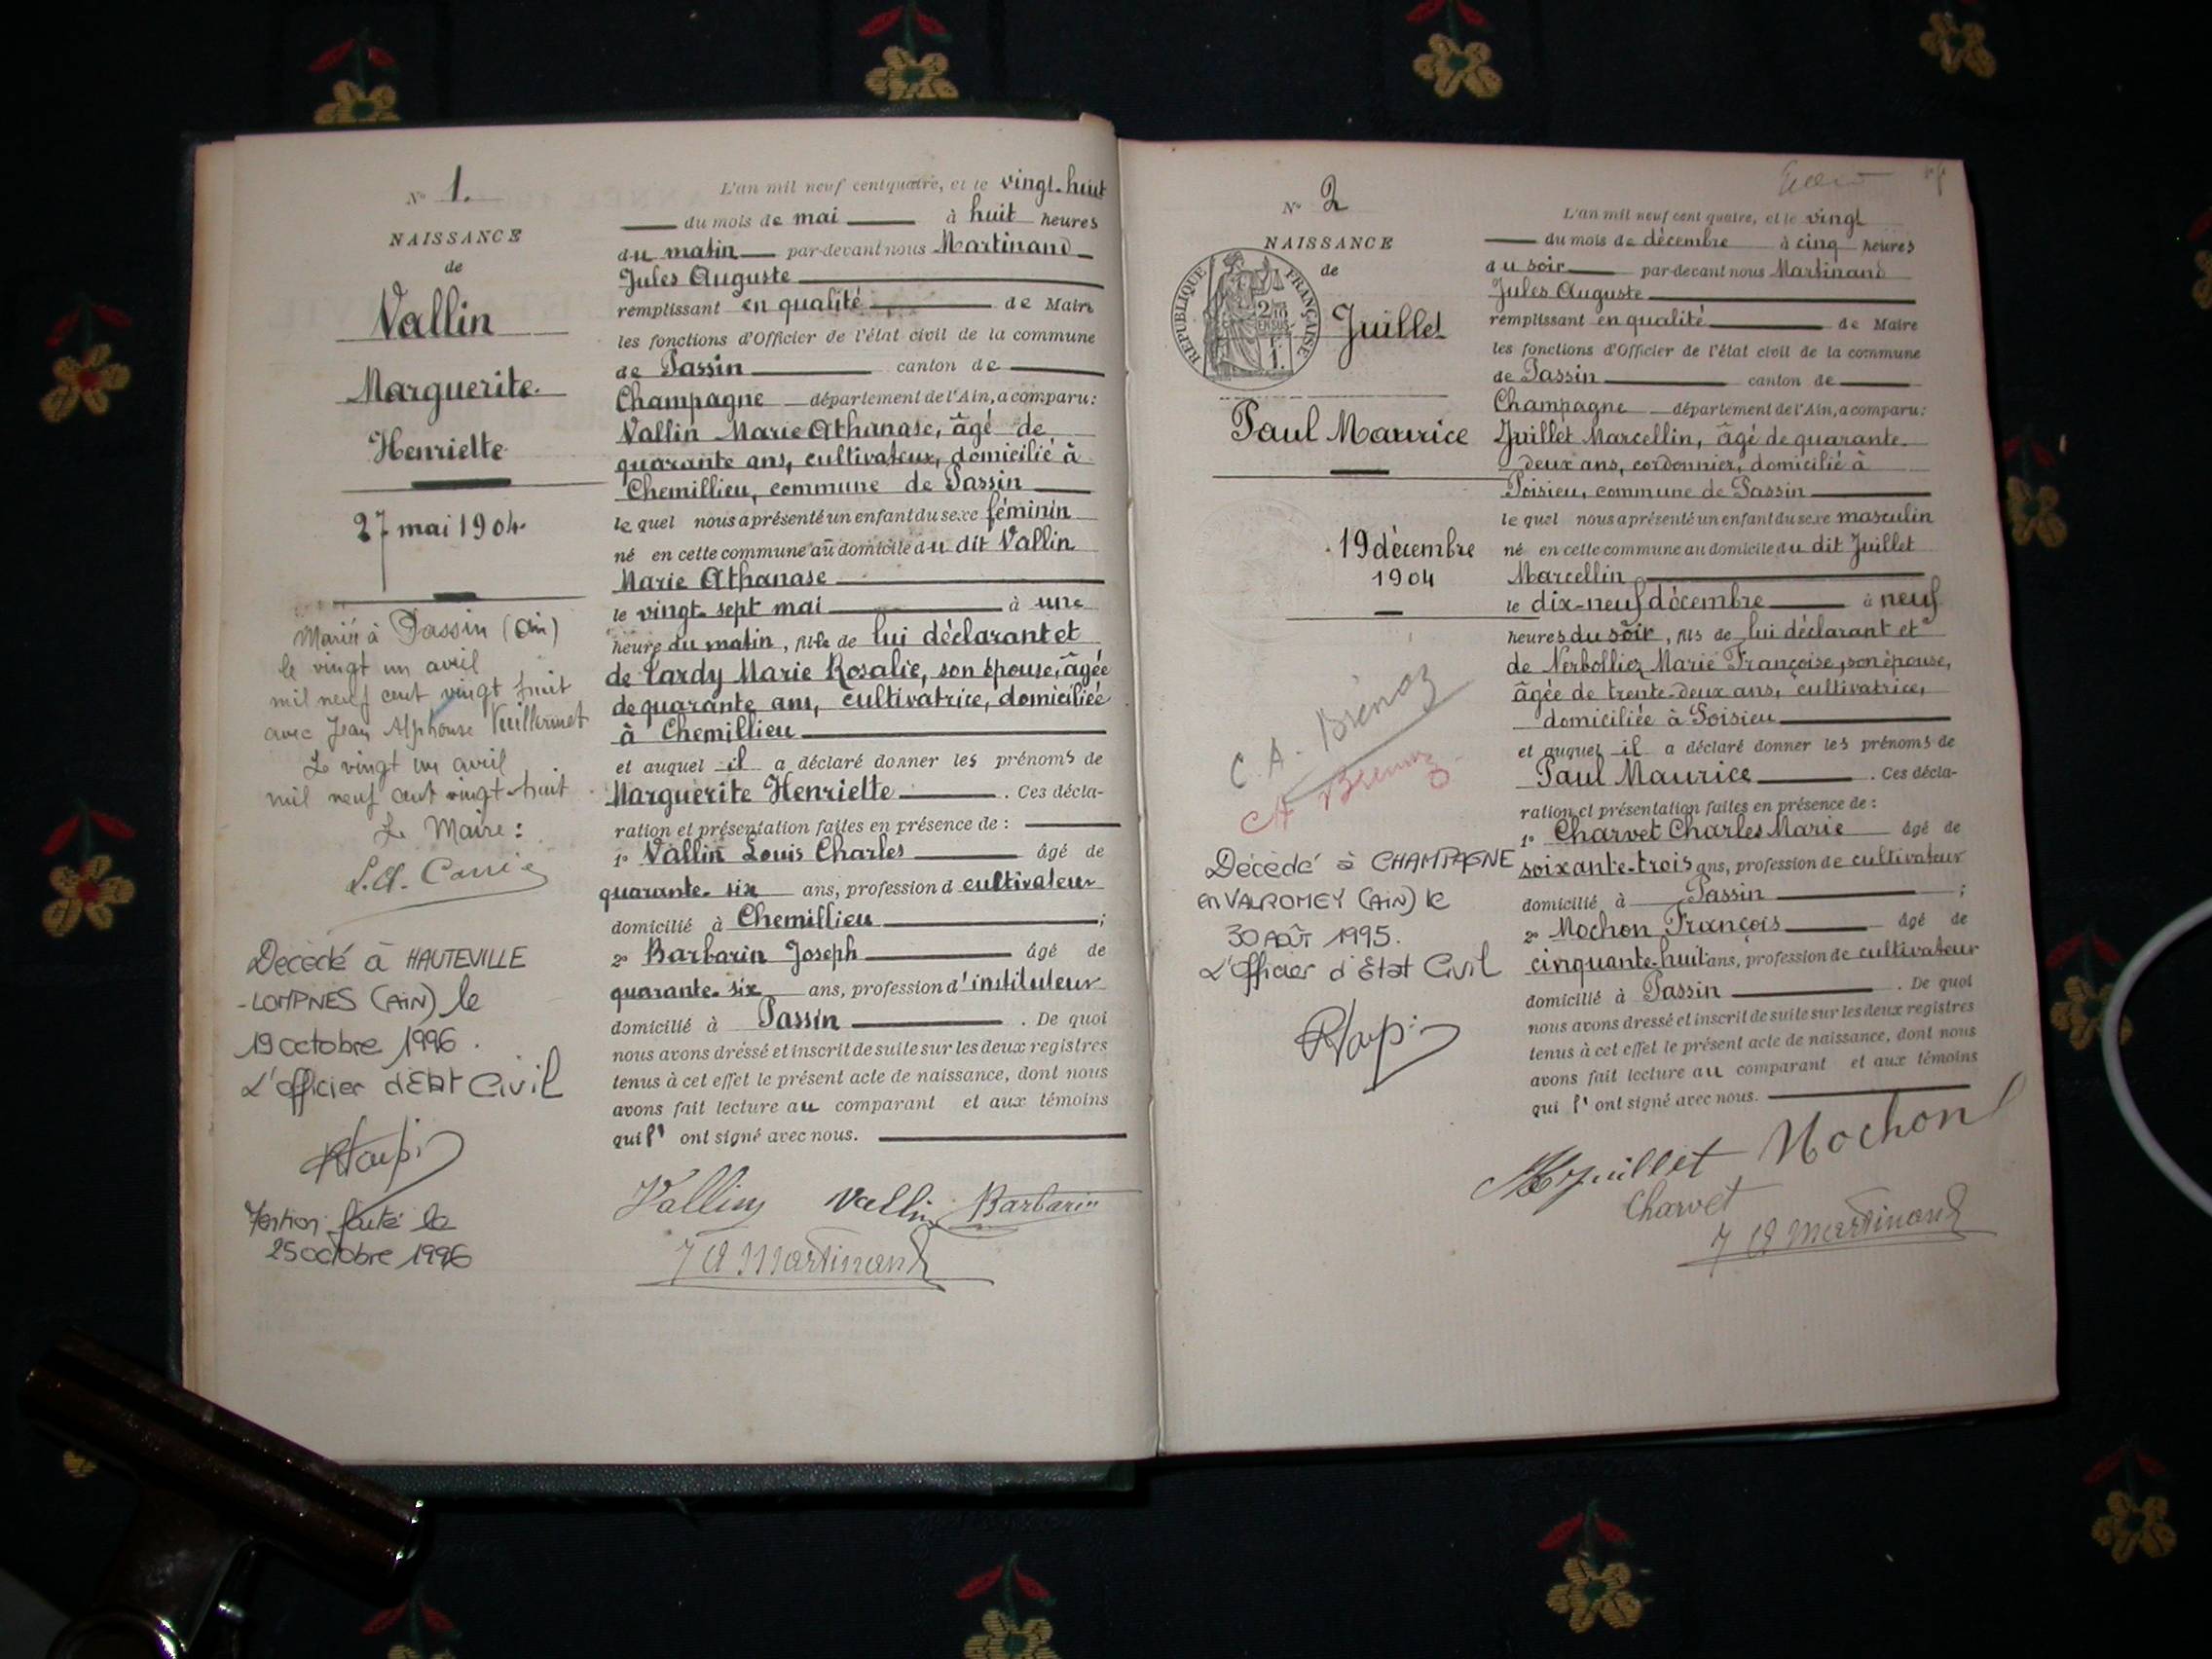 N° 1.
NAISSANCE
de
Vallin
Marguerite
Henriette
27 mai 1904
Mariée à Passin (Ain)
le vingt un avril
mil neuf cent vingt huit
avec Jean Alphonse Vuillermet
Le vingt un avril
mil neuf cent vingt-huit
Le Maire :
Décédé à HAUTEVILLE
-LOMPNES (AIN) le
19 octobre 1996.
L'officier d'Etat Civil
faite le
25 octobre 1996
L'an mil neuf cent quatre, et le vingt-huit
du mois de mai à huit heures
du matin par-devant nous Martinand
Jules Auguste
remplissant en qualité de Maire
les fonctions d'Officier de l'état civil de la commune
de Passin canton de
Champagne département de l'Ain, a comparu :
Vallin Marie Athanase, âgé de
quarante ans, cultivateur, domicilié à
Chemillieu, commune de Passin
le quel nous a présenté un enfant du sexe féminin
né en cette commune au domicile du dit Vallin
Marie Athanase
le vingt-sept mai à une
heure du matin, fille de lui déclarant et
de Tardy Marie Rosalie, son épouse, âgée
de quarante ans, cultivatrice, domiciliée
à Chemillieu
et auquel il a déclaré donner les prénoms de
Marguerite Henriette. Ces décla-
ration et présentation faites en présence de :
1° Vallin Louis Charles âgé de
quarante-six ans, profession d cultivateur
domicilié à Chemillieu ;
2° Barbarin Joseph âgé de
quarante-six ans, profession d'instituteur
domicilié à Passin. De quoi
nous avons dressé et inscrit de suite sur les deux registres
tenus à cet effet le présent acte de naissance, dont nous
avons fait lecture au comparant et aux témoins
qui l'ont signé avec nous.
Vallin Vallin Barbarin
J A Martinand
N° 2
NAISSANCE
de
REPUBLIQUE FRANÇAISE
Juillet
Paul Maurice
19 décembre
1904
C. A. Brénaz
CA Brénaz
Décédé à CHAMPAGNE
en VALROMEY (AIN) le
30 AOÛT 1995.
L'officier d'Etat Civil
L'an mil neuf cent quatre, et le vingt
du mois de décembre à cinq heures
du soir par-devant nous Martinand
Jules Auguste
remplissant en qualité de Maire
les fonctions d'Officier de l'état civil de la commune
de Passin canton de
Champagne département de l'Ain, a comparu :
Juillet Marcellin, âgé de quarante-
deux ans, cordonnier, domicilié à
Poisieu, commune de Passin
le quel nous a présenté un enfant du sexe masculin
né en cette commune au domicile du dit Juillet
Marcellin
le dix-neuf décembre à neuf
heures du soir, fils de lui déclarant et
de Verbolliez Marie Françoise, son épouse,
âgée de trente-deux ans, cultivatrice,
domiciliée à Poisieu
et auquel il a déclaré donner les prénoms de
Paul Maurice. Ces décla-
ration et présentation faites en présence de :
1° Charvet Charles Marie âgé de
soixante-trois ans, profession de cultivateur
domicilié à Passin ;
2° Mochon François âgé de
cinquante-huit ans, profession de cultivateur
domicilié à Passin. De quoi
nous avons dressé et inscrit de suite sur les deux registres
tenus à cet effet le présent acte de naissance, dont nous
avons fait lecture au comparant et aux témoins
qui l'ont signé avec nous.
Juillet Mochon
Charvet
J A Martinand